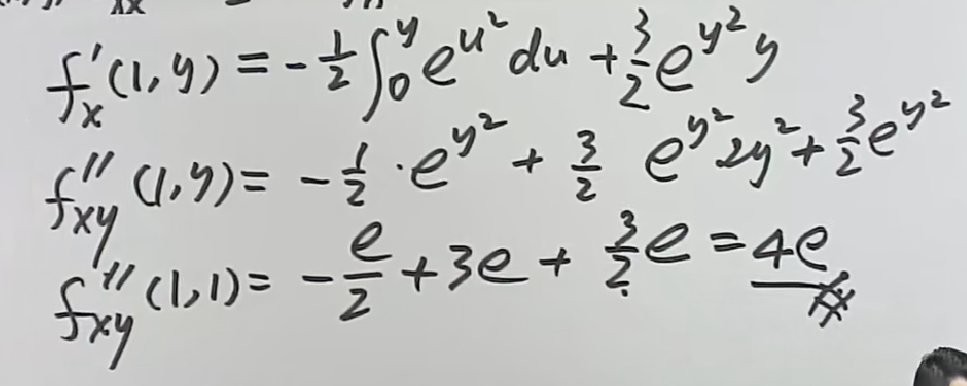 f'ₓ(1,y) = -1/2 ∫₀ʸ e^{u²} du + 3/2 e^{y²} y
f''ₓᵧ(1,y) = -1/2 · e^{y²} + 3/2 e^{y²} 2y² + 3/2 e^{y²}
f''ₓᵧ(1,1) = -e/2 + 3e + 3/2 e = 4e